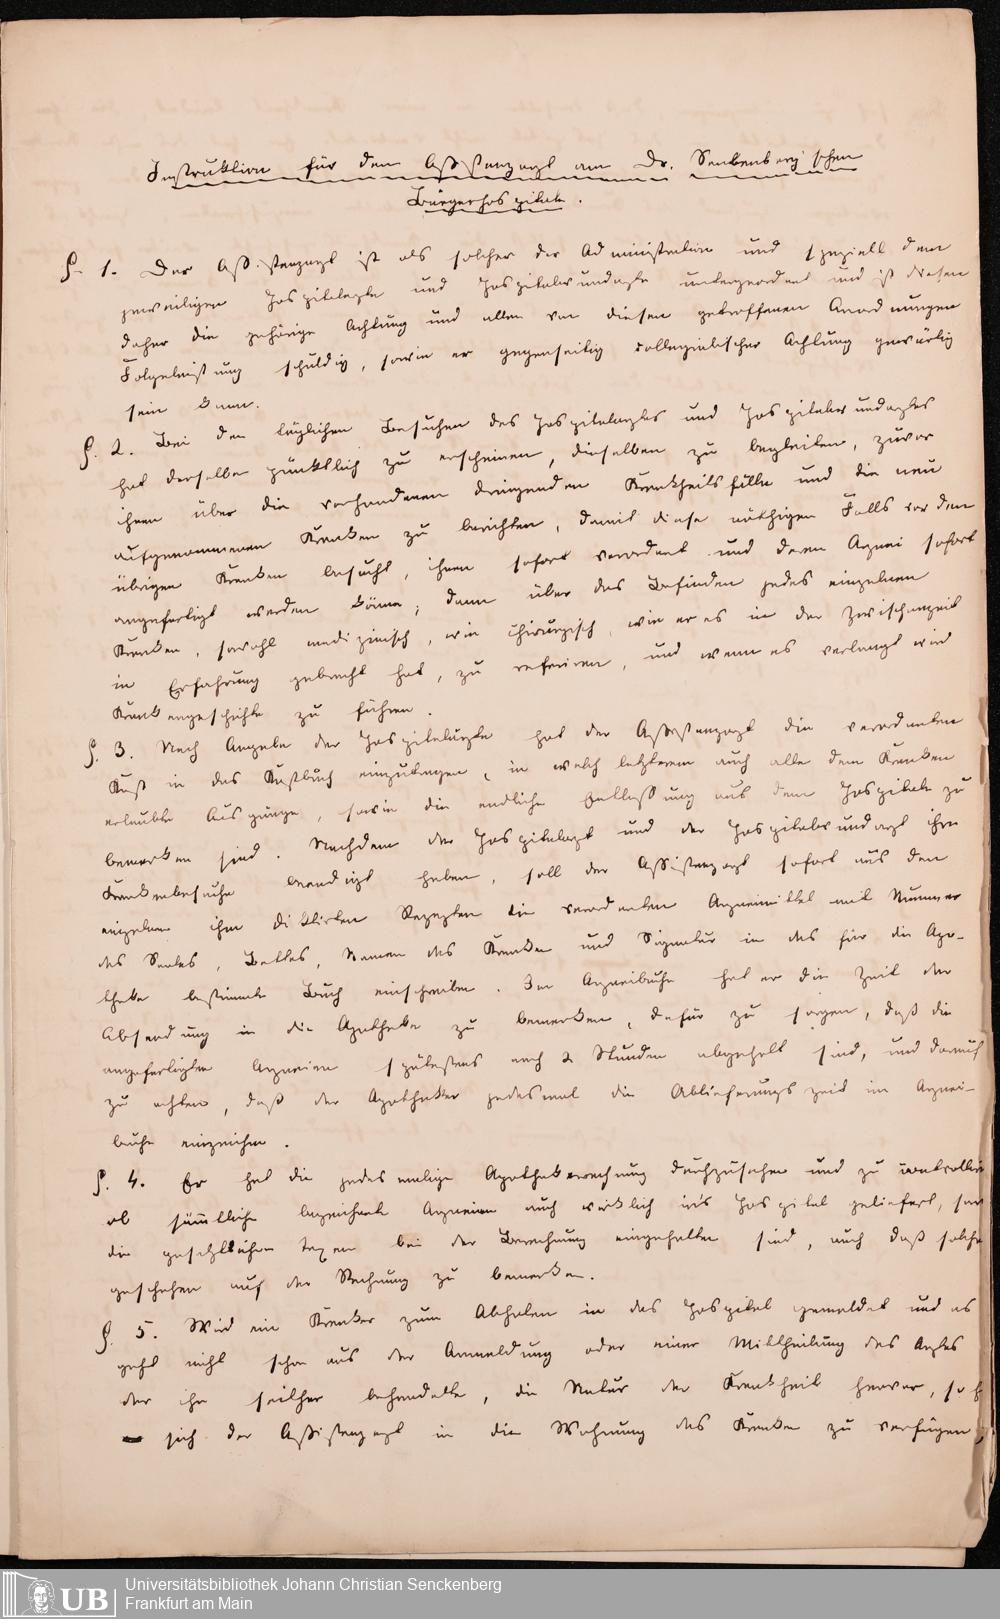 Instruktion für den Assistenzarzt am Dr. Senkenberg'schen
Bürgerhospitale.
§. 1. Der Assistenzarzt ist als solcher der Administration und speziell dem
jeweiligen Hospitalarzte und Hospitalwundarzte untergeordnet und ist diesen
daher die gehörige Achtung und allen von diesen getroffenen Anordnungen
Folgeleistung schuldig, sowie er gegenseitig collegialischer Achtung gewärtig
sein kann.
§. 2. Bei den täglichen Besuchen des Hospitalarztes und Hospitalwundarztes
hat derselbe pünktlich zu erscheinen, dieselben zu begleiten, zuvor
ihnen über die vorhandenen dringenden Krankheitsfälle und die neu
aufgenommenen Kranken zu berichten, damit diese nöthigen Falls vor den
übrigen Kranken besucht, ihnen sofort verordnet und deren Arznei sofort
angefertigt werden könne; dann über das Befinden jedes einzelnen
Kranken, sowohl medizinisch, wie chirurgisch, wie er es in der Zwischenzeit
in Erfahrung gebracht hat, zu referiren, und wenn es verlangt wird
Krankengeschichte zu führen.
§. 3. Nach Angabe der Hospitalärzte hat der Assistenzarzt die verordneten
Kost in das Kostbuch einzutragen, in welch letzterem auch alle den Kranken
erlaubte Ausgänge, sowie die endliche Entlassung aus dem Hospitale zu
bemerken sind. Nachdem der Hospitalarzt und der Hospitalwundarzt ihre
Krankenbesuche beendigt haben, soll der Assistenzarzt sofort aus den
einzelnen ihm diktirten Rezepten die verordneten Arzneimittel mit Nummer
des Saales, Bettes, Namen des Kranken und Signatur in das für die Apo-
theke bestimmte Buch einschreiben. Im Arzneibuche hat er die Zeit der
Absendung in die Apotheke zu bemerken, dafür zu sorgen, daß die
angefertigten Arzneien spätestens nach 2 Stunden abgeholt sind, und darauf
zu achten, daß der Apotheker jedesmal die Ablieferungszeit im Arznei-
buche einzeichne.
§. 4. Er hat die jedesmalige Apothekerrechnung durchzusehen und zu controllir
ob sämmtliche bezeichnete Arzneien auch wirklich in's Hospital geliefert, sow
die gesetzlichen Taxen bei der Berechnung eingehalten sind, auch daß solches
geschehen auf der Rechnung zu bemerken.
§. 5. Wird ein Kranker zum Abholen in das Hospital gemeldet und es
geht nicht schon aus der Anmeldung oder einer Mittheilung des Arztes
der ihn seither behandelte, die Natur der Krankheit hervor, so h
sich der Assistenzarzt in die Wohnung des Kranken zu verfügen,
Universitätsbibliothek Johann Christian Senckenberg
Frankfurt am Main
UB